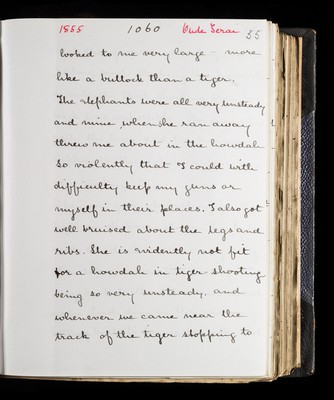 1855 1060 Oude Terai 55
looked to me very large - more
like a bullock than a tiger.
The elephants were all very unsteady
and mine, when she ran away
threw me about in the howdah
so violently that I could with
difficulty keep my guns or
myself in their places. I also got
well bruised about the legs and
ribs. She is evidently not fit
for a howdah in tiger shooting
being so very unsteady, and
whenever we came near the
track of the tiger stopping to